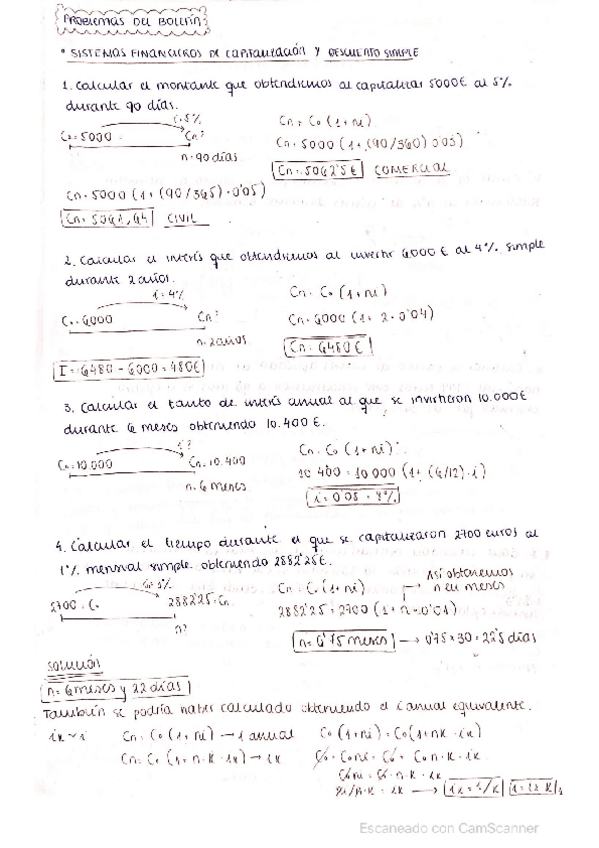 PROBLEMAS DEL BOLETÍN
• SISTEMAS FINANCIEROS DE CAPITALIZACIÓN Y DESCUENTO SIMPLE
1. Calcular el montante que obtendremos al capitalizar 5000€ al 5%
durante 90 días.
i=5%
Co=5000 Cn?
n=90 días
Cn = Co (1+ni)
Cn = 5000 (1+(90/360) 0'05)
Cn = 5062'5€ COMERCIAL
Cn = 5000 (1+(90/365)·0'05)
Cn = 5061,64 CIVIL
2. Calcular el interés que obtendremos al invertir 6000€ al 4% simple
durante 2 años.
i=4%
Co=6000 Cn?
n=2años
Cn = Co (1+ni)
Cn = 6000 (1+2·0'04)
Cn = 6480€
I = 6480 - 6000 = 480€
3. Calcular el tanto de interés anual al que se invirtieron 10.000€
durante 6 meses obteniendo 10.400€.
i?
Co=10.000 Cn=10.400
n=6 meses
Cn = Co (1+ni)
10 400 = 10 000 (1+(6/12)·i)
4. Calcular el tiempo durante el que se capitalizaron 2700 euros al
1% mensual simple obteniendo 2882'25€.
2700 = Co 2882'25 = Cn
n?
Cn = Co (1+ni)
Así obtenemos
n en meses
2882'25 = 2700 (1+n·0'01)
n=6'75 meses → 0'75×30 = 22'5 días
SOLUCIÓN
n = 6 meses y 22 días
También se podría haber calculado obteniendo el i anual equivalente.
ik ~ i Cn = Co (1+ni) → i anual Co (1+ni) = Co (1+nk·ik)
Cn = Co (1+n·k·ik) → ik Co + Coni = Co + Con·k·ik
Coni = Co·n·k·ik
ni/n·k = ik → ik = i/k i = ik·k
Escaneado con CamScanner